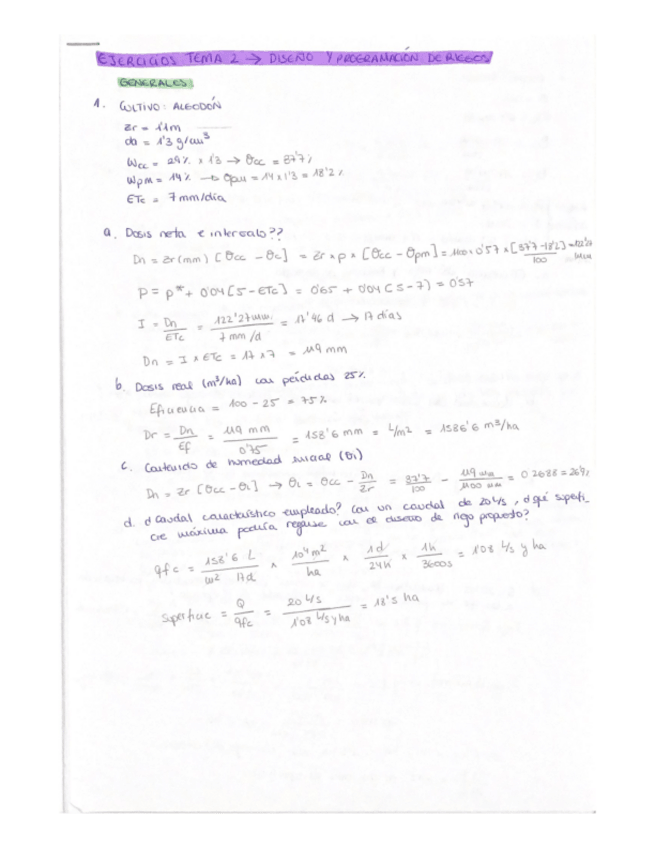 EJERCICIOS TEMA 2 → DISEÑO Y PROGRAMACIÓN DE RIEGOS
GENERALES:
1. CULTIVO: ALGODÓN
Zr = 1'1m
da = 1'3 g/cm³
Wcc = 29% x 1'3 → θcc = 37'7%
Wpm = 14% → θpm = 14 x 1'3 = 18'2%
ETc = 7 mm/día
a. Dosis neta e intervalo??
Dn = Zr (mm) [θcc - θc] = Zr x p x [θcc - θpm] = 1100 x 0'57 x [37'7 - 18'2]/100 = 122'27 mm
P = p* + 0'04 [5 - ETc] = 0'65 + 0'04 (5 - 7) = 0'57
I = Dn/ETc = 122'27 mm/7 mm/d = 17'46 d → 17 días
Dn = I x ETc = 17 x 7 = 119 mm
b. Dosis real (m³/ha) con pérdidas 25%
Eficiencia = 100 - 25 = 75%
Dr = Dn/Ef = 119 mm/0'75 = 158'6 mm = L/m² = 1586'6 m³/ha
c. Contenido de humedad inicial (θi)
Dn = Zr [θcc - θi] → θi = θcc - Dn/Zr = 37'7/100 - 119 mm/1100 mm = 0'2688 = 26'9%
d. ¿Caudal característico empleado? Con un caudal de 20 L/s, ¿qué superfi-
cie máxima podría regarse con el diseño de riego propuesto?
qfc = 158'6 L/m² 17d x 10⁴ m²/ha x 1d/24h x 1h/3600s = 1'08 L/s y ha
Superficie = Q/qfc = 20 L/s/1'08 L/s y ha = 18'5 ha